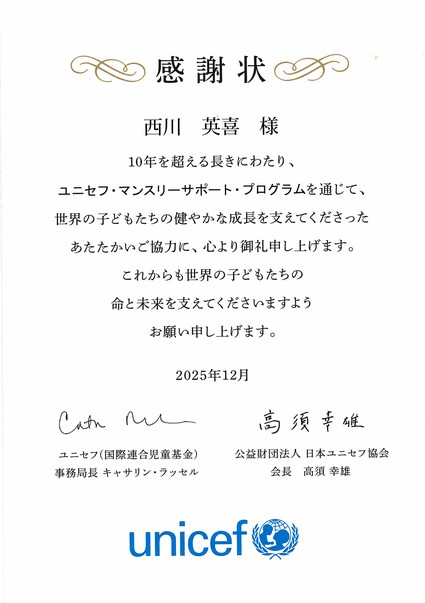 感謝状
西川 英喜 様
10年を超える長きにわたり、
ユニセフ・マンスリーサポート・プログラムを通じて、
世界の子どもたちの健やかな成長を支えてくださった
あたたかいご協力に、心より御礼申し上げます。
これからも世界の子どもたちの
命と未来を支えてくださいますよう
お願い申し上げます。
2025年12月
高須幸雄
ユニセフ(国際連合児童基金)
事務局長 キャサリン・ラッセル
公益財団法人 日本ユニセフ協会
会長 高須 幸雄
unicef